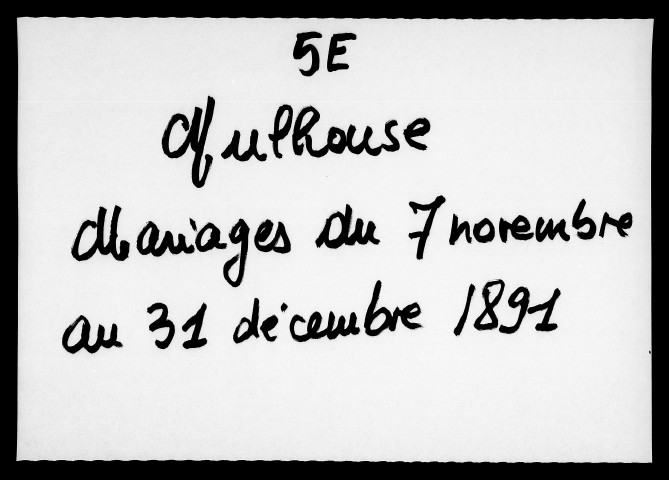 5E
Mulhouse
Mariages du 7 novembre
au 31 décembre 1891